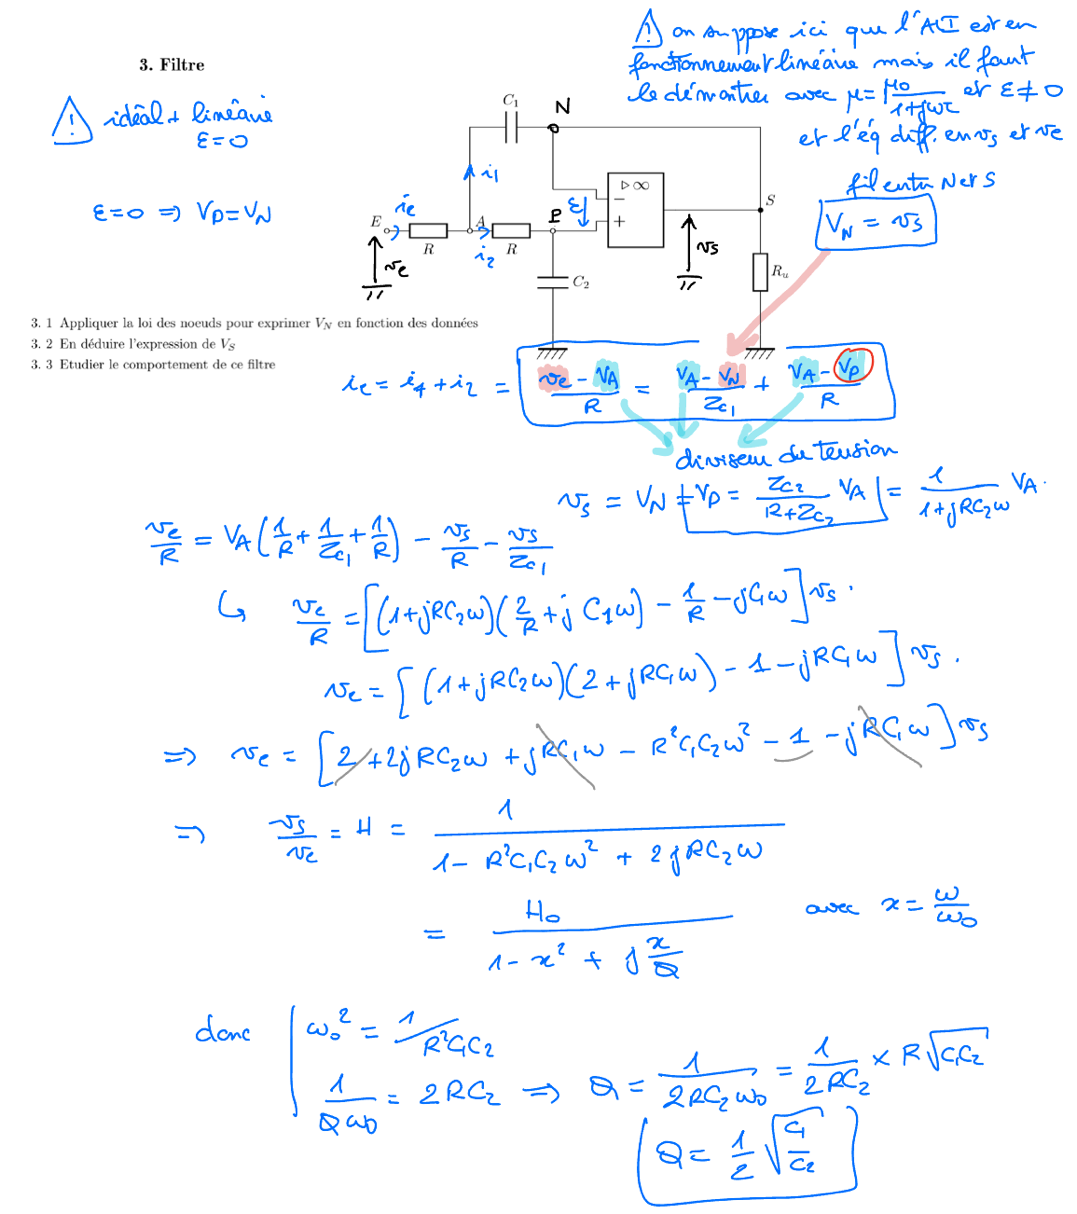 ⚠ on suppose ici que l'ALI est en
fonctionnement linéaire mais il faut
le démontrer avec μ = μ0/(1+jωτ) et ε ≠ 0
et l'éq diff. en vs et ve
3. Filtre
⚠ idéal + linéaire
ε=0
ε=0 ⇒ VP=VN
fil entre N et S
VN = vs
C1
N
i1
▷∞
−
+
ε
P
S
E
ie
A
i2
R
R
ve
vs
C2
Ru
3. 1 Appliquer la loi des noeuds pour exprimer VN en fonction des données
3. 2 En déduire l'expression de VS
3. 3 Etudier le comportement de ce filtre
ie = i1 + i2 = (ve − VA)/R = (VA − VN)/Zc1 + (VA − VP)/R
diviseur du tension
vs = VN = VP = Zc2/(R+Zc2) VA = 1/(1+jRC2ω) VA.
ve/R = VA(1/R + 1/Zc1 + 1/R) − vs/R − vs/Zc1
↳ ve/R = [(1+jRC2ω)(2/R + j C1ω) − 1/R − jC1ω] vs.
ve = [(1+jRC2ω)(2+jRC1ω) − 1 − jRC1ω] vs.
⇒ ve = [2 + 2jRC2ω + jRC1ω − R²C1C2ω² − 1 − jRC1ω] vs
⇒ vs/ve = H = 1/(1 − R²C1C2ω² + 2jRC2ω)
= H0/(1 − x² + j x/Q) avec x = ω/ω0
donc ω0² = 1/R²C1C2
1/(Qω0) = 2RC2 ⇒ Q = 1/(2RC2ω0) = 1/(2RC2) × R√(C1C2)
Q = 1/2 √(C1/C2)